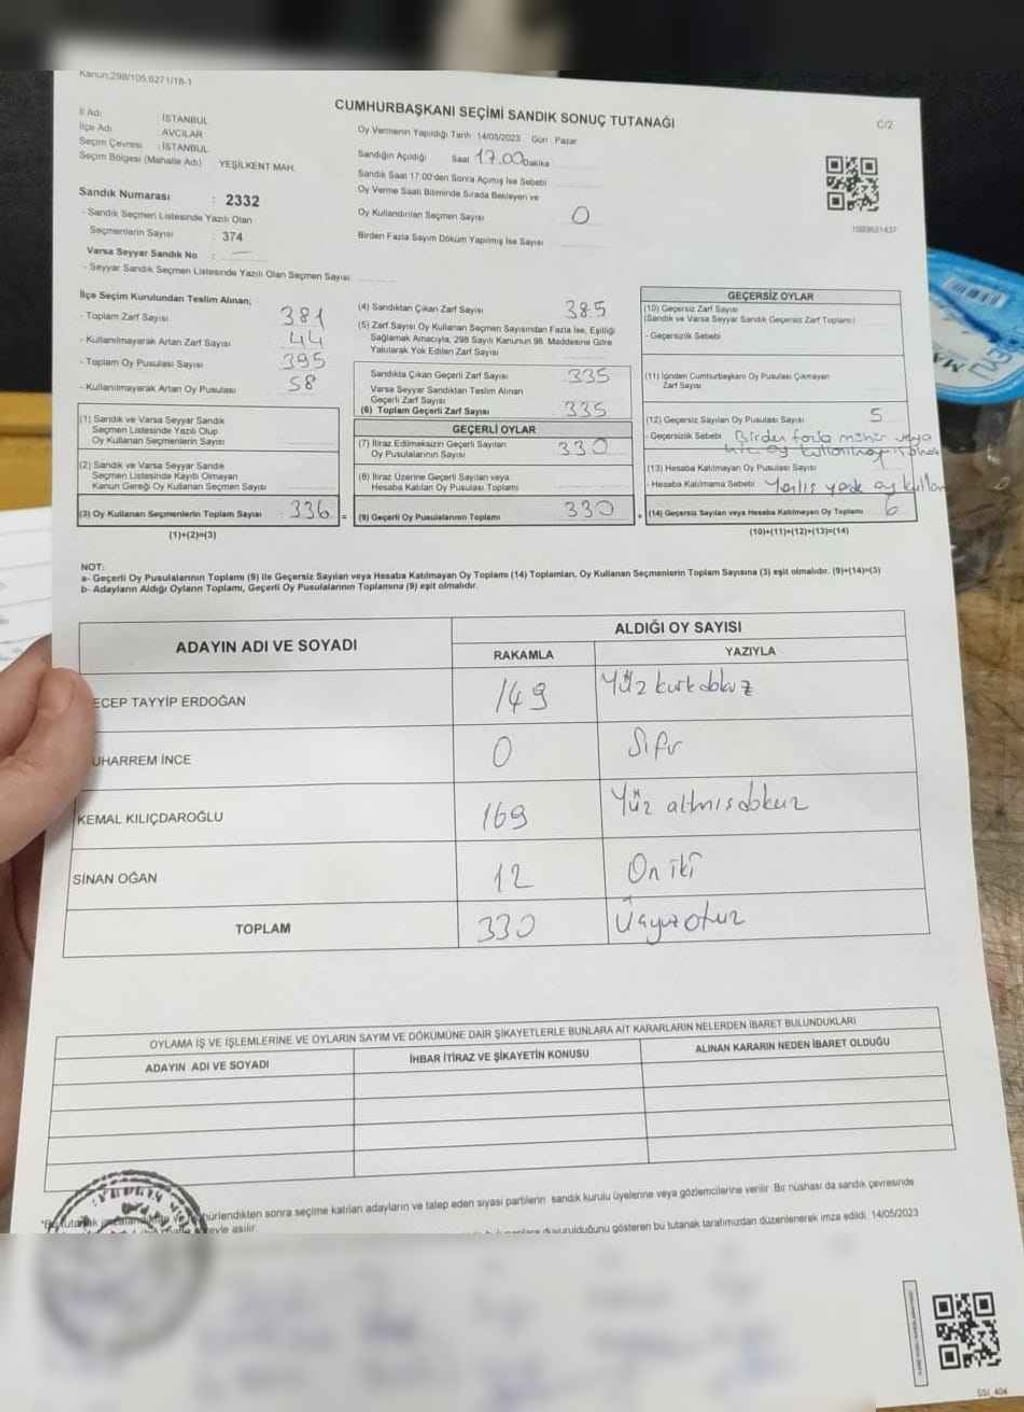 Kanun:298/105,6271/18-1
CUMHURBAŞKANI SEÇİMİ SANDIK SONUÇ TUTANAĞI
C/2
İl Adı : İSTANBUL
İlçe Adı : AVCILAR
Seçim Çevresi : İSTANBUL
Seçim Bölgesi (Mahalle Adı) YEŞİLKENT MAH.
Oy Vermenin Yapıldığı Tarih 14/05/2023 Gün : Pazar
Sandığın Açıldığı Saat 17.00 Dakika
Sandık Saat 17:00'den Sonra Açılmış İse Sebebi
Oy Verme Saati Bitiminde Sırada Bekleyen ve
Oy Kullandırılan Seçmen Sayısı 0
Birden Fazla Sayım Döküm Yapılmış İse Sayısı
Sandık Numarası : 2332
- Sandık Seçmen Listesinde Yazılı Olan
Seçmenlerin Sayısı : 374
Varsa Seyyar Sandık No :
- Seyyar Sandık Seçmen Listesinde Yazılı Olan Seçmen Sayısı
İlçe Seçim Kurulundan Teslim Alınan;
- Toplam Zarf Sayısı 381
- Kullanılmayarak Artan Zarf Sayısı 44
- Toplam Oy Pusulası Sayısı 395
- Kullanılmayarak Artan Oy Pusulası 58
(1) Sandık ve Varsa Seyyar Sandık
Seçmen Listesinde Yazılı Olup
Oy Kullanan Seçmenlerin Sayısı
(2) Sandık ve Varsa Seyyar Sandık
Seçmen Listesinde Kayıtlı Olmayan
Kanun Gereği Oy Kullanan Seçmen Sayısı
(3) Oy Kullanan Seçmenlerin Toplam Sayısı 336 =
(1)+(2)=(3)
(4) Sandıktan Çıkan Zarf Sayısı 385
(5) Zarf Sayısı Oy Kullanan Seçmen Sayısından Fazla İse, Eşitliği
Sağlamak Amacıyla, 298 Sayılı Kanunun 98. Maddesine Göre
Yakılarak Yok Edilen Zarf Sayısı
Sandıkta Çıkan Geçerli Zarf Sayısı 335
Varsa Seyyar Sandıktan Teslim Alınan
Geçerli Zarf Sayısı
(6) Toplam Geçerli Zarf Sayısı 335
GEÇERLİ OYLAR
(7) İtiraz Edilmeksizin Geçerli Sayılan
Oy Pusulalarının Sayısı 330
(8) İtiraz Üzerine Geçerli Sayılan veya
Hesaba Katılan Oy Pusulası Toplamı
(9) Geçerli Oy Pusulalarının Toplamı 330 +
GEÇERSİZ OYLAR
(10) Geçersiz Zarf Sayısı
(Sandık ve Varsa Seyyar Sandık Geçersiz Zarf Toplamı)
- Geçersizlik Sebebi
(11) İçinden Cumhurbaşkanı Oy Pusulası Çıkmayan
Zarf Sayısı
(12) Geçersiz Sayılan Oy Pusulası Sayısı 5
- Geçersizlik Sebebi Birden fazla mühür veya
hiç oy kullanmayıp
(13) Hesaba Katılmayan Oy Pusulası Sayısı
- Hesaba Katılmama Sebebi Yanlış yerde oy kullan
(14) Geçersiz Sayılan veya Hesaba Katılmayan Oy Toplamı 6
(10)+(11)+(12)+(13)=(14)
NOT:
a- Geçerli Oy Pusulalarının Toplamı (9) ile Geçersiz Sayılan veya Hesaba Katılmayan Oy Toplamı (14) Toplamları, Oy Kullanan Seçmenlerin Toplam Sayısına (3) eşit olmalıdır. (9)+(14)=(3)
b- Adayların Aldığı Oyların Toplamı, Geçerli Oy Pusulalarının Toplamına (9) eşit olmalıdır.
ADAYIN ADI VE SOYADI
ALDIĞI OY SAYISI
RAKAMLA YAZIYLA
ECEP TAYYİP ERDOĞAN 149 Yüz kırk dokuz
UHARREM İNCE 0 Sıfır
KEMAL KILIÇDAROĞLU 169 Yüz altmış dokuz
SİNAN OĞAN 12 On iki
TOPLAM 330 Üçyüz otuz
OYLAMA İŞ VE İŞLEMLERİNE VE OYLARIN SAYIM VE DÖKÜMÜNE DAİR ŞİKAYETLERLE BUNLARA AİT KARARLARIN NELERDEN İBARET BULUNDUKLARI
ADAYIN ADI VE SOYADI İHBAR İTİRAZ VE ŞİKAYETİN KONUSU ALINAN KARARIN NEDEN İBARET OLDUĞU
hürlendikten sonra seçime katılan adayların ve talep eden siyasi partilerin sandık kurulu üyelerine veya gözlemcilerine verilir. Bir nüshası da sandık çevresinde
eyle asılır.
duyurulduğunu gösteren bu tutanak tarafımızdan düzenlenerek imza edildi. 14/05/2023